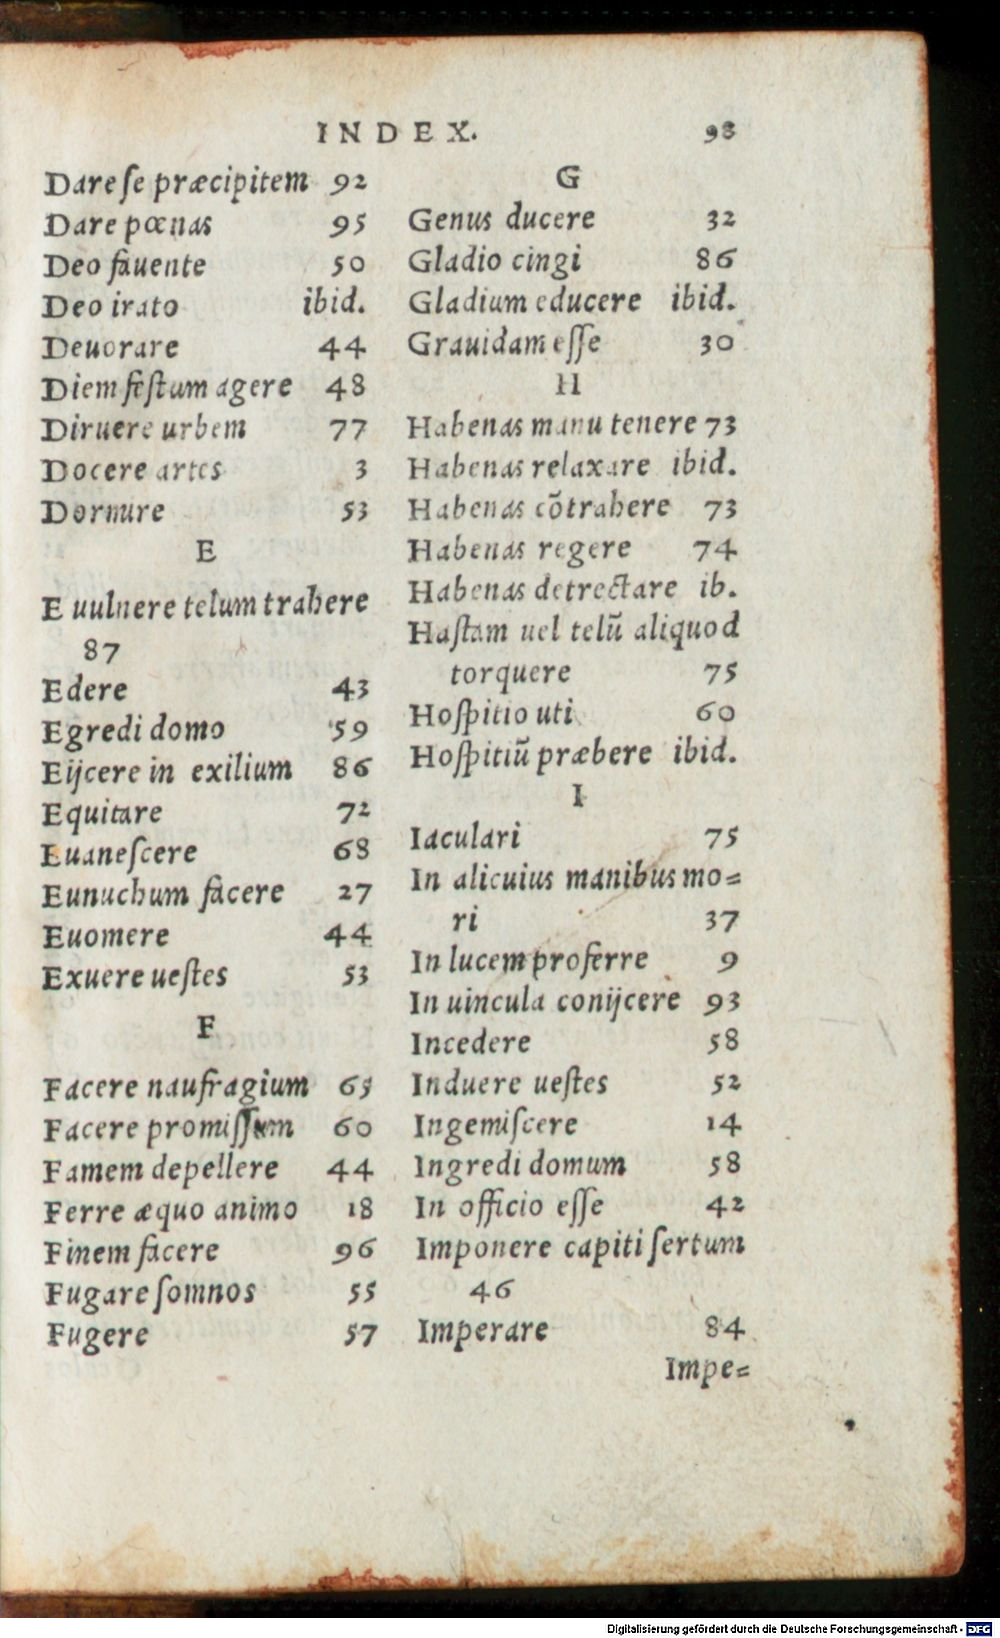 INDEX. 98
Dare se præcipitem 92
Dare pœnas 95
Deo fauente 50
Deo irato ibid.
Deuorare 44
Diem festum agere 48
Diruere urbem 77
Docere artes 3
Dormire 53
E
E uulnere telum trahere
87
Edere 43
Egredi domo 59
Eijcere in exilium 86
Equitare 72
Euanescere 68
Eunuchum facere 27
Euomere 44
Exuere uestes 53
F
Facere naufragium 65
Facere promissum 60
Famem depellere 44
Ferre æquo animo 18
Finem facere 96
Fugare somnos 55
Fugere 57
G
Genus ducere 32
Gladio cingi 86
Gladium educere ibid.
Grauidam esse 30
H
Habenas manu tenere 73
Habenas relaxare ibid.
Habenas cõtrahere 73
Habenas regere 74
Habenas detrectare ib.
Hastam uel telũ aliquod
torquere 75
Hospitio uti 60
Hospitiũ præbere ibid.
I
Iaculari 75
In alicuius manibus mo=
ri 37
In lucem proferre 9
In uincula conijcere 93
Incedere 58
Induere uestes 52
Ingemiscere 14
Ingredi domum 58
In officio esse 42
Imponere capiti sertum
46
Imperare 84
Impe=
Digitalisierung gefördert durch die Deutsche Forschungsgemeinschaft - DFG